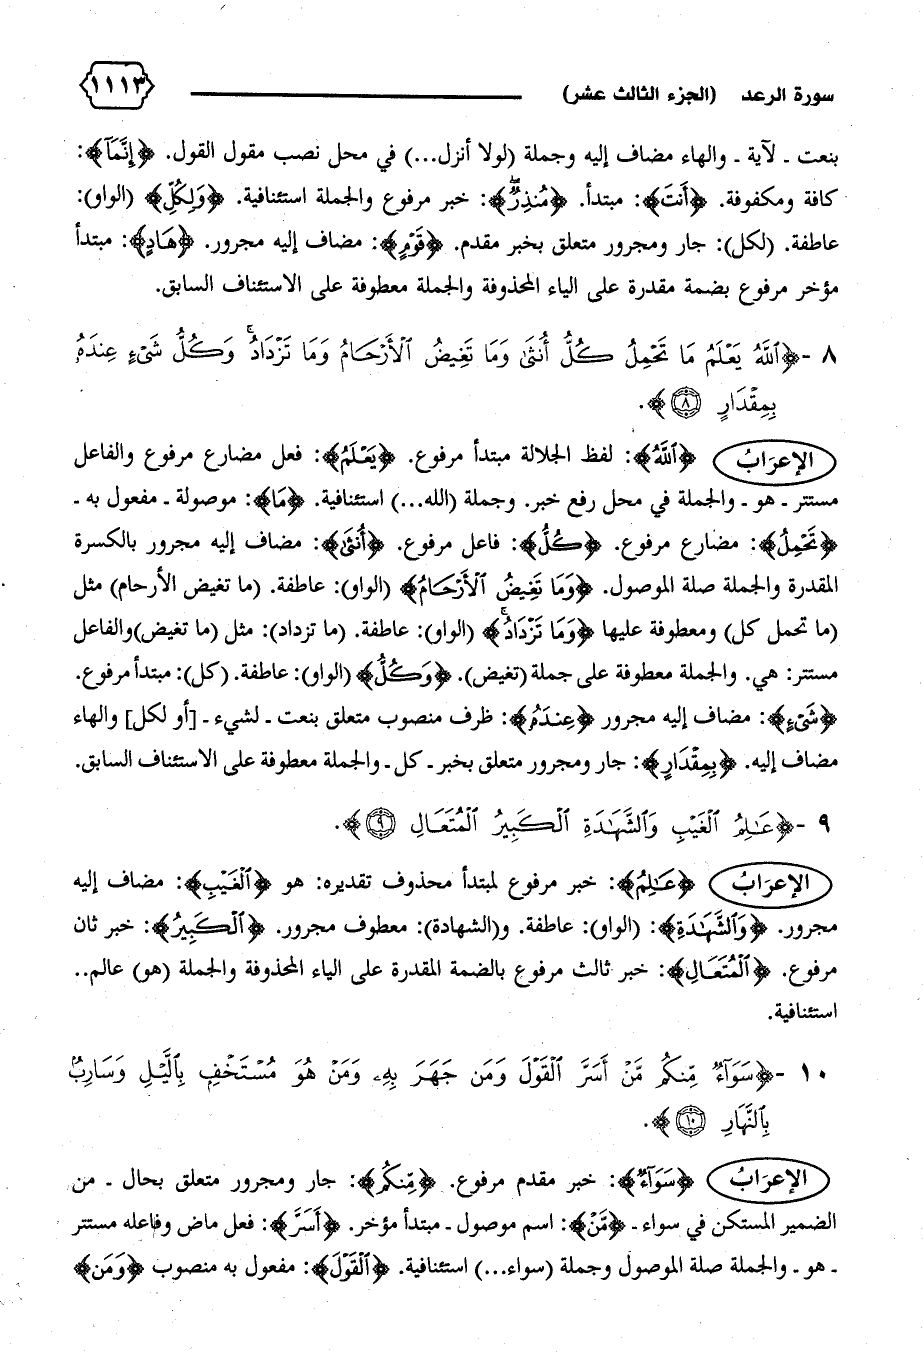 سورة الرعد (الجزء الثالث عشر) ١١١٣
بنعت ـ لآية ـ والهاء مضاف إليه وجملة (لولا أنزل...) في محل نصب مقول القول. ﴿إِنَّمَآ﴾:
كافة ومكفوفة. ﴿أَنتَ﴾: مبتدأ. ﴿مُنذِرٌۖ﴾: خبر مرفوع والجملة استئنافية. ﴿وَلِكُلِّ﴾ (الواو):
عاطفة. (لكل): جار ومجرور متعلق بخبر مقدم. ﴿قَوْمٍ﴾: مضاف إليه مجرور. ﴿هَادٍ﴾: مبتدأ
مؤخر مرفوع بضمة مقدرة على الياء المحذوفة والجملة معطوفة على الاستئناف السابق.
٨ -﴿ٱللَّهُ يَعْلَمُ مَا تَحْمِلُ كُلُّ أُنثَىٰ وَمَا تَغِيضُ ٱلْأَرْحَامُ وَمَا تَزْدَادُۚ وَكُلُّ شَىْءٍ عِندَهُۥ
بِمِقْدَارٍ ٨﴾.
الإعرَابُ ﴿ٱللَّهُ﴾: لفظ الجلالة مبتدأ مرفوع. ﴿يَعْلَمُ﴾: فعل مضارع مرفوع والفاعل
مستتر ـ هو ـ والجملة في محل رفع خبر. وجملة (الله...) استئنافية. ﴿مَا﴾: موصولة ـ مفعول به ـ
﴿تَحْمِلُ﴾: مضارع مرفوع. ﴿كُلُّ﴾: فاعل مرفوع. ﴿أُنثَىٰ﴾: مضاف إليه مجرور بالكسرة
المقدرة والجملة صلة الموصول. ﴿وَمَا تَغِيضُ ٱلْأَرْحَامُ﴾ (الواو): عاطفة. (ما تغيض الأرحام) مثل
(ما تحمل كل) ومعطوفة عليها ﴿وَمَا تَزْدَادُۚ﴾ (الواو): عاطفة. (ما تزداد): مثل (ما تغيض)والفاعل
مستتر: هي. والجملة معطوفة على جملة (تغيض). ﴿وَكُلُّ﴾ (الواو): عاطفة. (كل): مبتدأ مرفوع.
﴿شَىْءٍ﴾: مضاف إليه مجرور ﴿عِندَهُۥ﴾: ظرف منصوب متعلق بنعت ـ لشيء ـ [أو لكل] والهاء
مضاف إليه. ﴿بِمِقْدَارٍ﴾: جار ومجرور متعلق بخبر ـ كل ـ والجملة معطوفة على الاستئناف السابق.
٩ -﴿عَٰلِمُ ٱلْغَيْبِ وَٱلشَّهَٰدَةِ ٱلْكَبِيرُ ٱلْمُتَعَالِ ٩﴾.
الإعرَابُ ﴿عَٰلِمُ﴾: خبر مرفوع لمبتدأ محذوف تقديره: هو ﴿ٱلْغَيْبِ﴾: مضاف إليه
مجرور. ﴿وَٱلشَّهَٰدَةِ﴾: (الواو): عاطفة. و(الشهادة): معطوف مجرور. ﴿ٱلْكَبِيرُ﴾: خبر ثان
مرفوع. ﴿ٱلْمُتَعَالِ﴾: خبر ثالث مرفوع بالضمة المقدرة على الياء المحذوفة والجملة (هو) عالم..
استئنافية.
١٠ -﴿سَوَآءٌ مِّنكُم مَّنْ أَسَرَّ ٱلْقَوْلَ وَمَن جَهَرَ بِهِۦ وَمَنْ هُوَ مُسْتَخْفٍۭ بِٱلَّيْلِ وَسَارِبٌۢ
بِٱلنَّهَارِ ١٠﴾.
الإعرَابُ ﴿سَوَآءٌ﴾: خبر مقدم مرفوع. ﴿مِّنكُم﴾: جار ومجرور متعلق بحال ـ من
الضمير المستكن في سواء ـ ﴿مَّنْ﴾: اسم موصول ـ مبتدأ مؤخر. ﴿أَسَرَّ﴾: فعل ماض وفاعله مستتر
ـ هو ـ والجملة صلة الموصول وجملة (سواء...) استئنافية. ﴿ٱلْقَوْلَ﴾: مفعول به منصوب ﴿وَمَن﴾